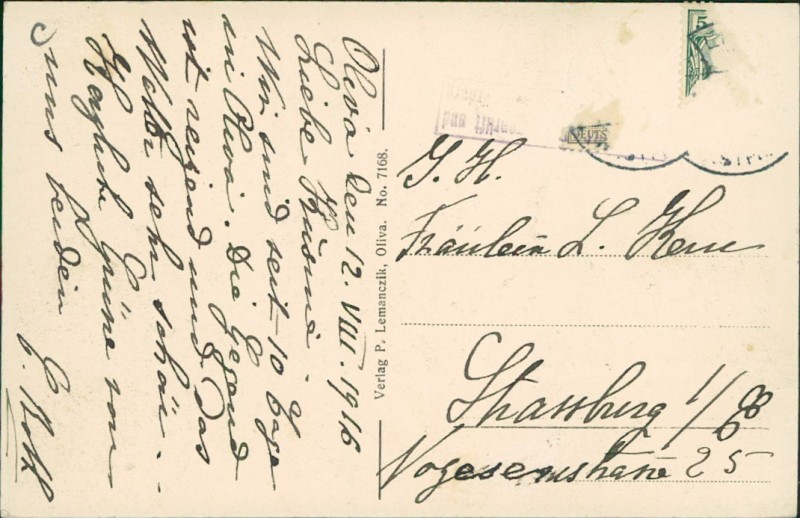 Oliva den 12. VIII. 1916
Liebe
Wir sind seit 10 Tage
in Oliva. Die Gegend
ist reizend und das
Wetter sehr schön.
Grüsse von
uns beiden
E. Roth
Verlag P. Lemanczik, Oliva. No. 7168.
5
geprüft und
DEUTS
S. H.
Fräulein L. Kern
Strassburg i/E
Vogesenstrasse 25